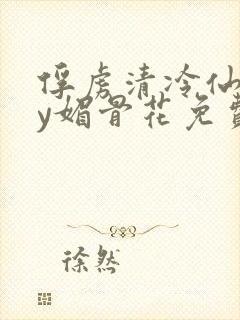 俘虏清冷仙
y媚骨花免费
徐然